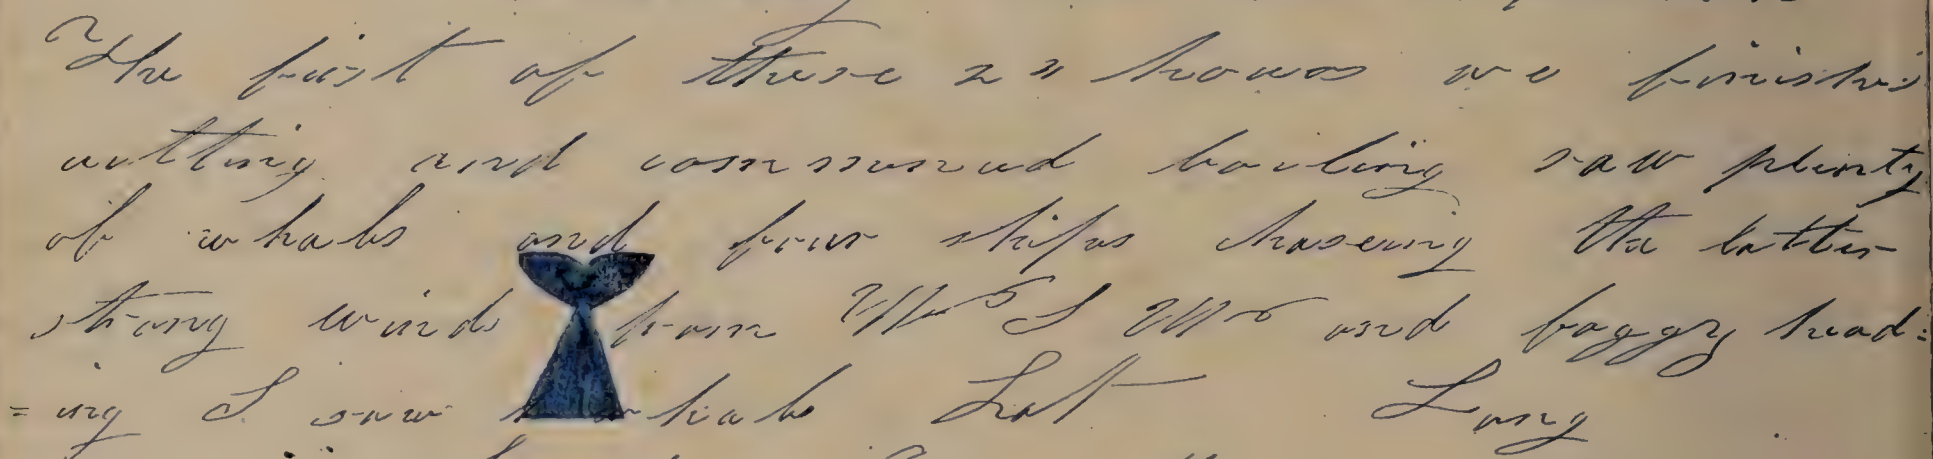 The first of these 24 hours we finishd
cutting and commencd boiling saw plenty
of whales and four ships chaseing the latter
strong winds from and foggy head=
=ing S saw whales Lat Long